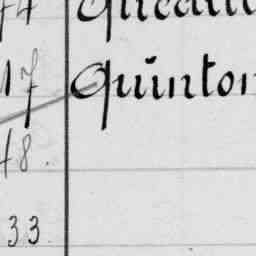 17 Quinton
48.
33.